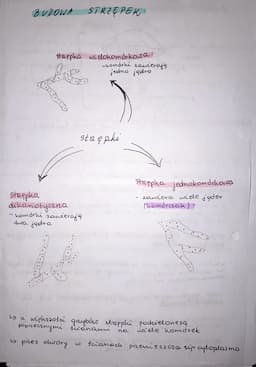 BUDOWA STRZĘPEK
strzępka wielokomórkowa
- komórki zawierają
jedno jądro
strzępki
strzępka
dikariotyczna
- komórki zawierają
dwa jądra
strzępka jednokomórkowa
- zawiera wiele jąder
(komórczak)
↳ u większości grzybów strzępki podzielone są
poprzecznymi ścianami na wiele komórek
↳ przez otwory w ścianach przemieszcza się cytoplazma